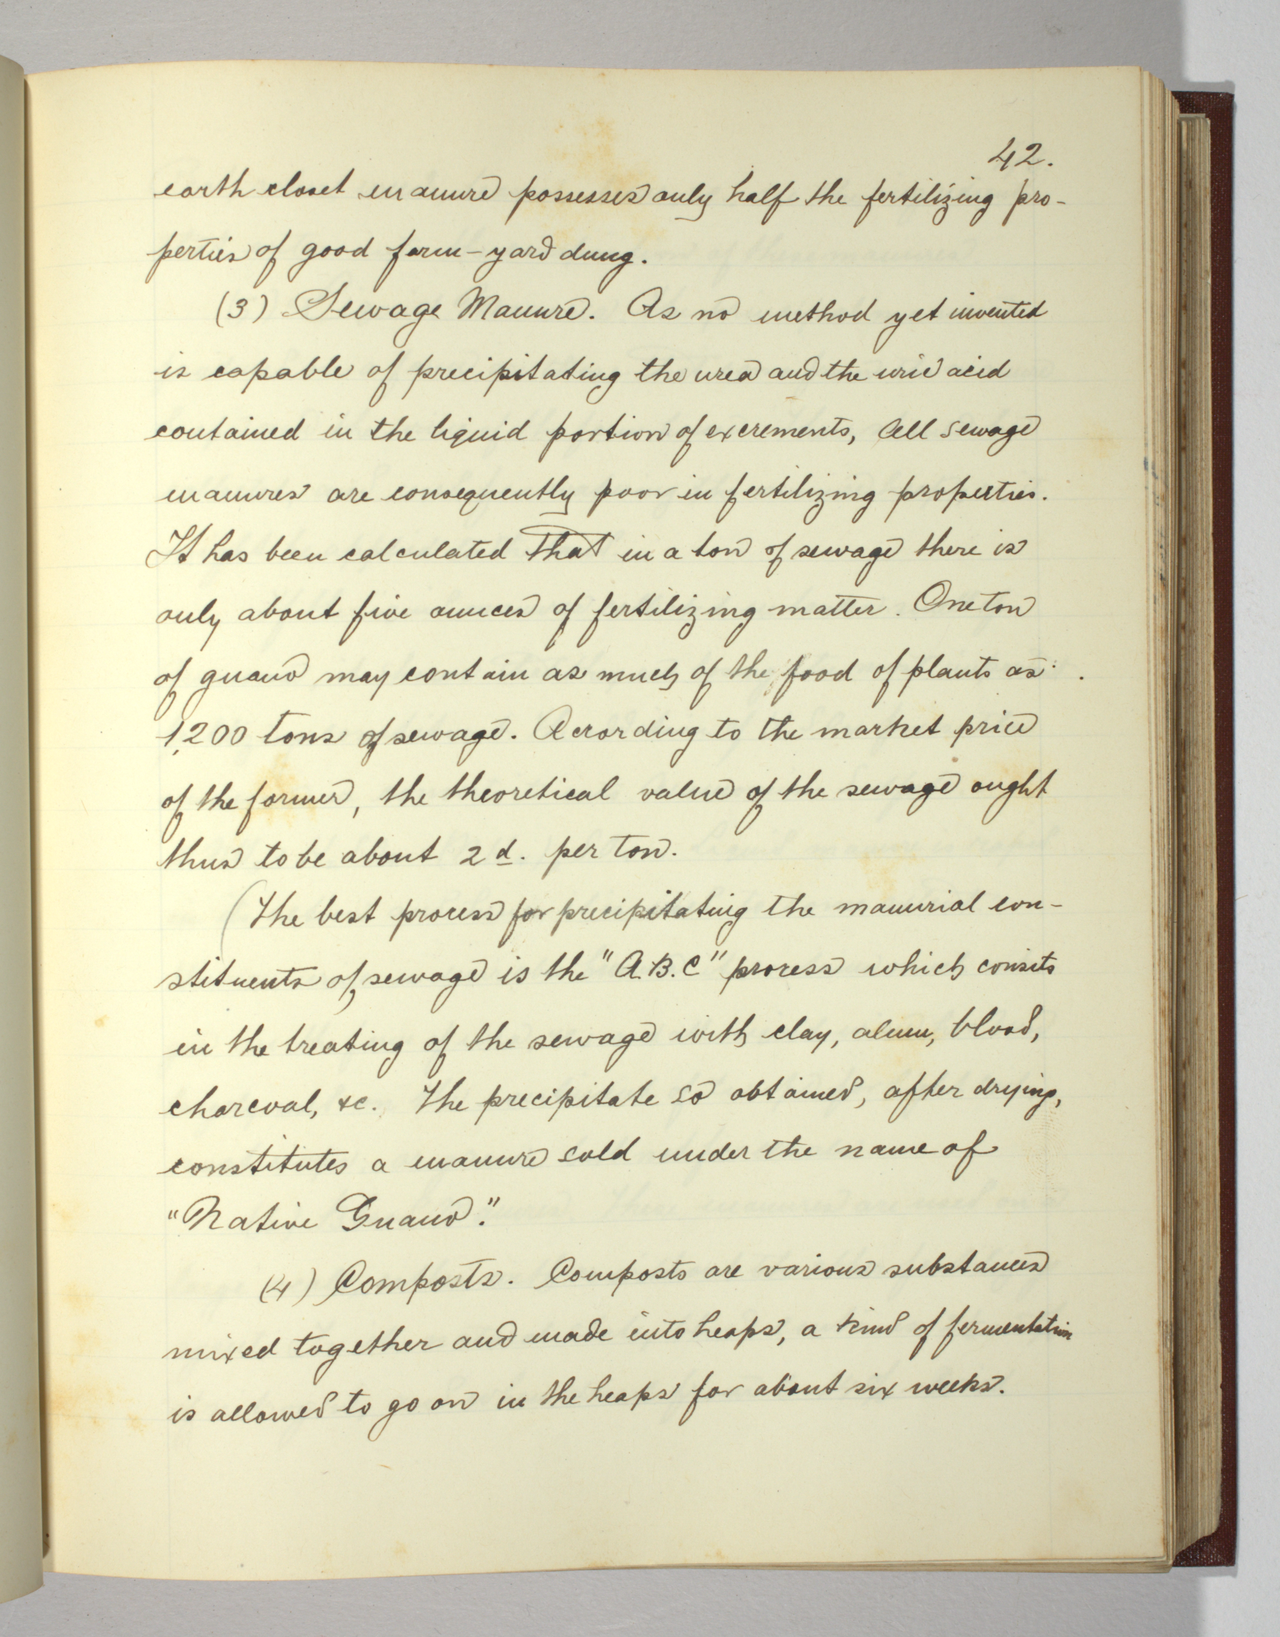 42.
earth closet manure possesses only half the fertilizing pro-
perties of good farm-yard dung.
(3) Sewage Manure. As no method yet invented
is capable of precipitating the urea and the uric acid
contained in the liquid portion of excrements, all sewage
manures are consequently poor in fertilizing properties.
It has been calculated that in a ton of sewage there is
only about five ounces of fertilizing matter. One ton
of guano may contain as much of the food of plants as
1,200 tons of sewage. Acrording to the market price
of the former, the theoretical value of the sewage ought
thus to be about 2 d. per ton.
(The best process for precipitating the manurial con-
stituents of sewage is the "A.B.C" process which consits
in the treating of the sewage with clay, alum, blood,
charcoal, &c. The precipitate so obtained, after drying,
constitutes a manure sold under the name of
"Native Guano."
(4) Composts. Composts are various substances
mixed together and made into heaps, a kind of fermentation
is allowed to go on in the heaps for about six weeks.